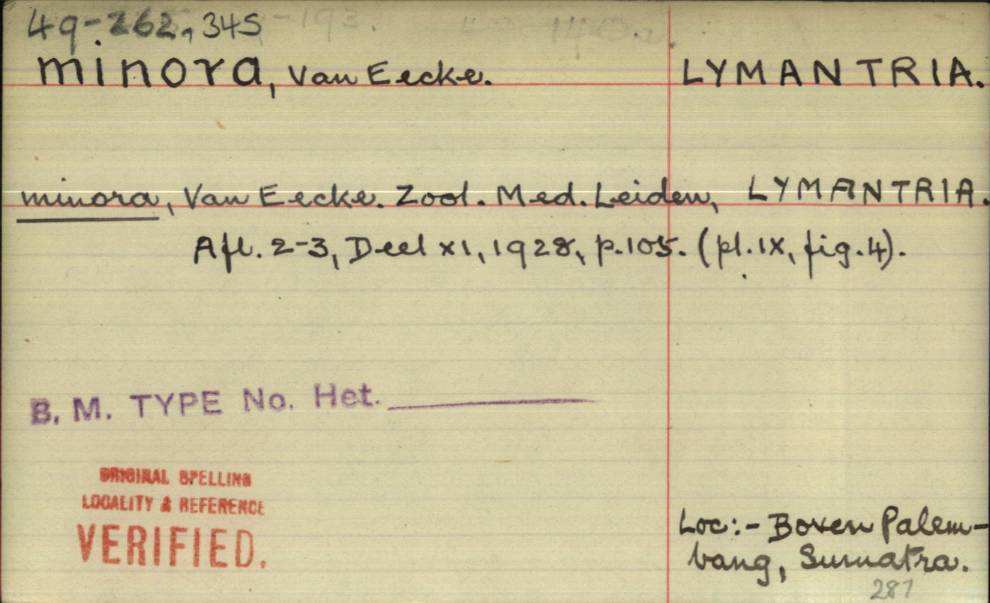 49-262, 345
minora, Van Eecke. LYMANTRIA.
minora, Van Eecke. Zool. Med. Leiden, LYMANTRIA.
Afl. 2-3, Deel XI, 1928, p.105. (pl.IX, fig.4).
B. M. TYPE No. Het.
ORIGINAL SPELLING
LOCALITY & REFERENCE
VERIFIED.
Loc:- Boven Palem-
bang, Sumatra.
287